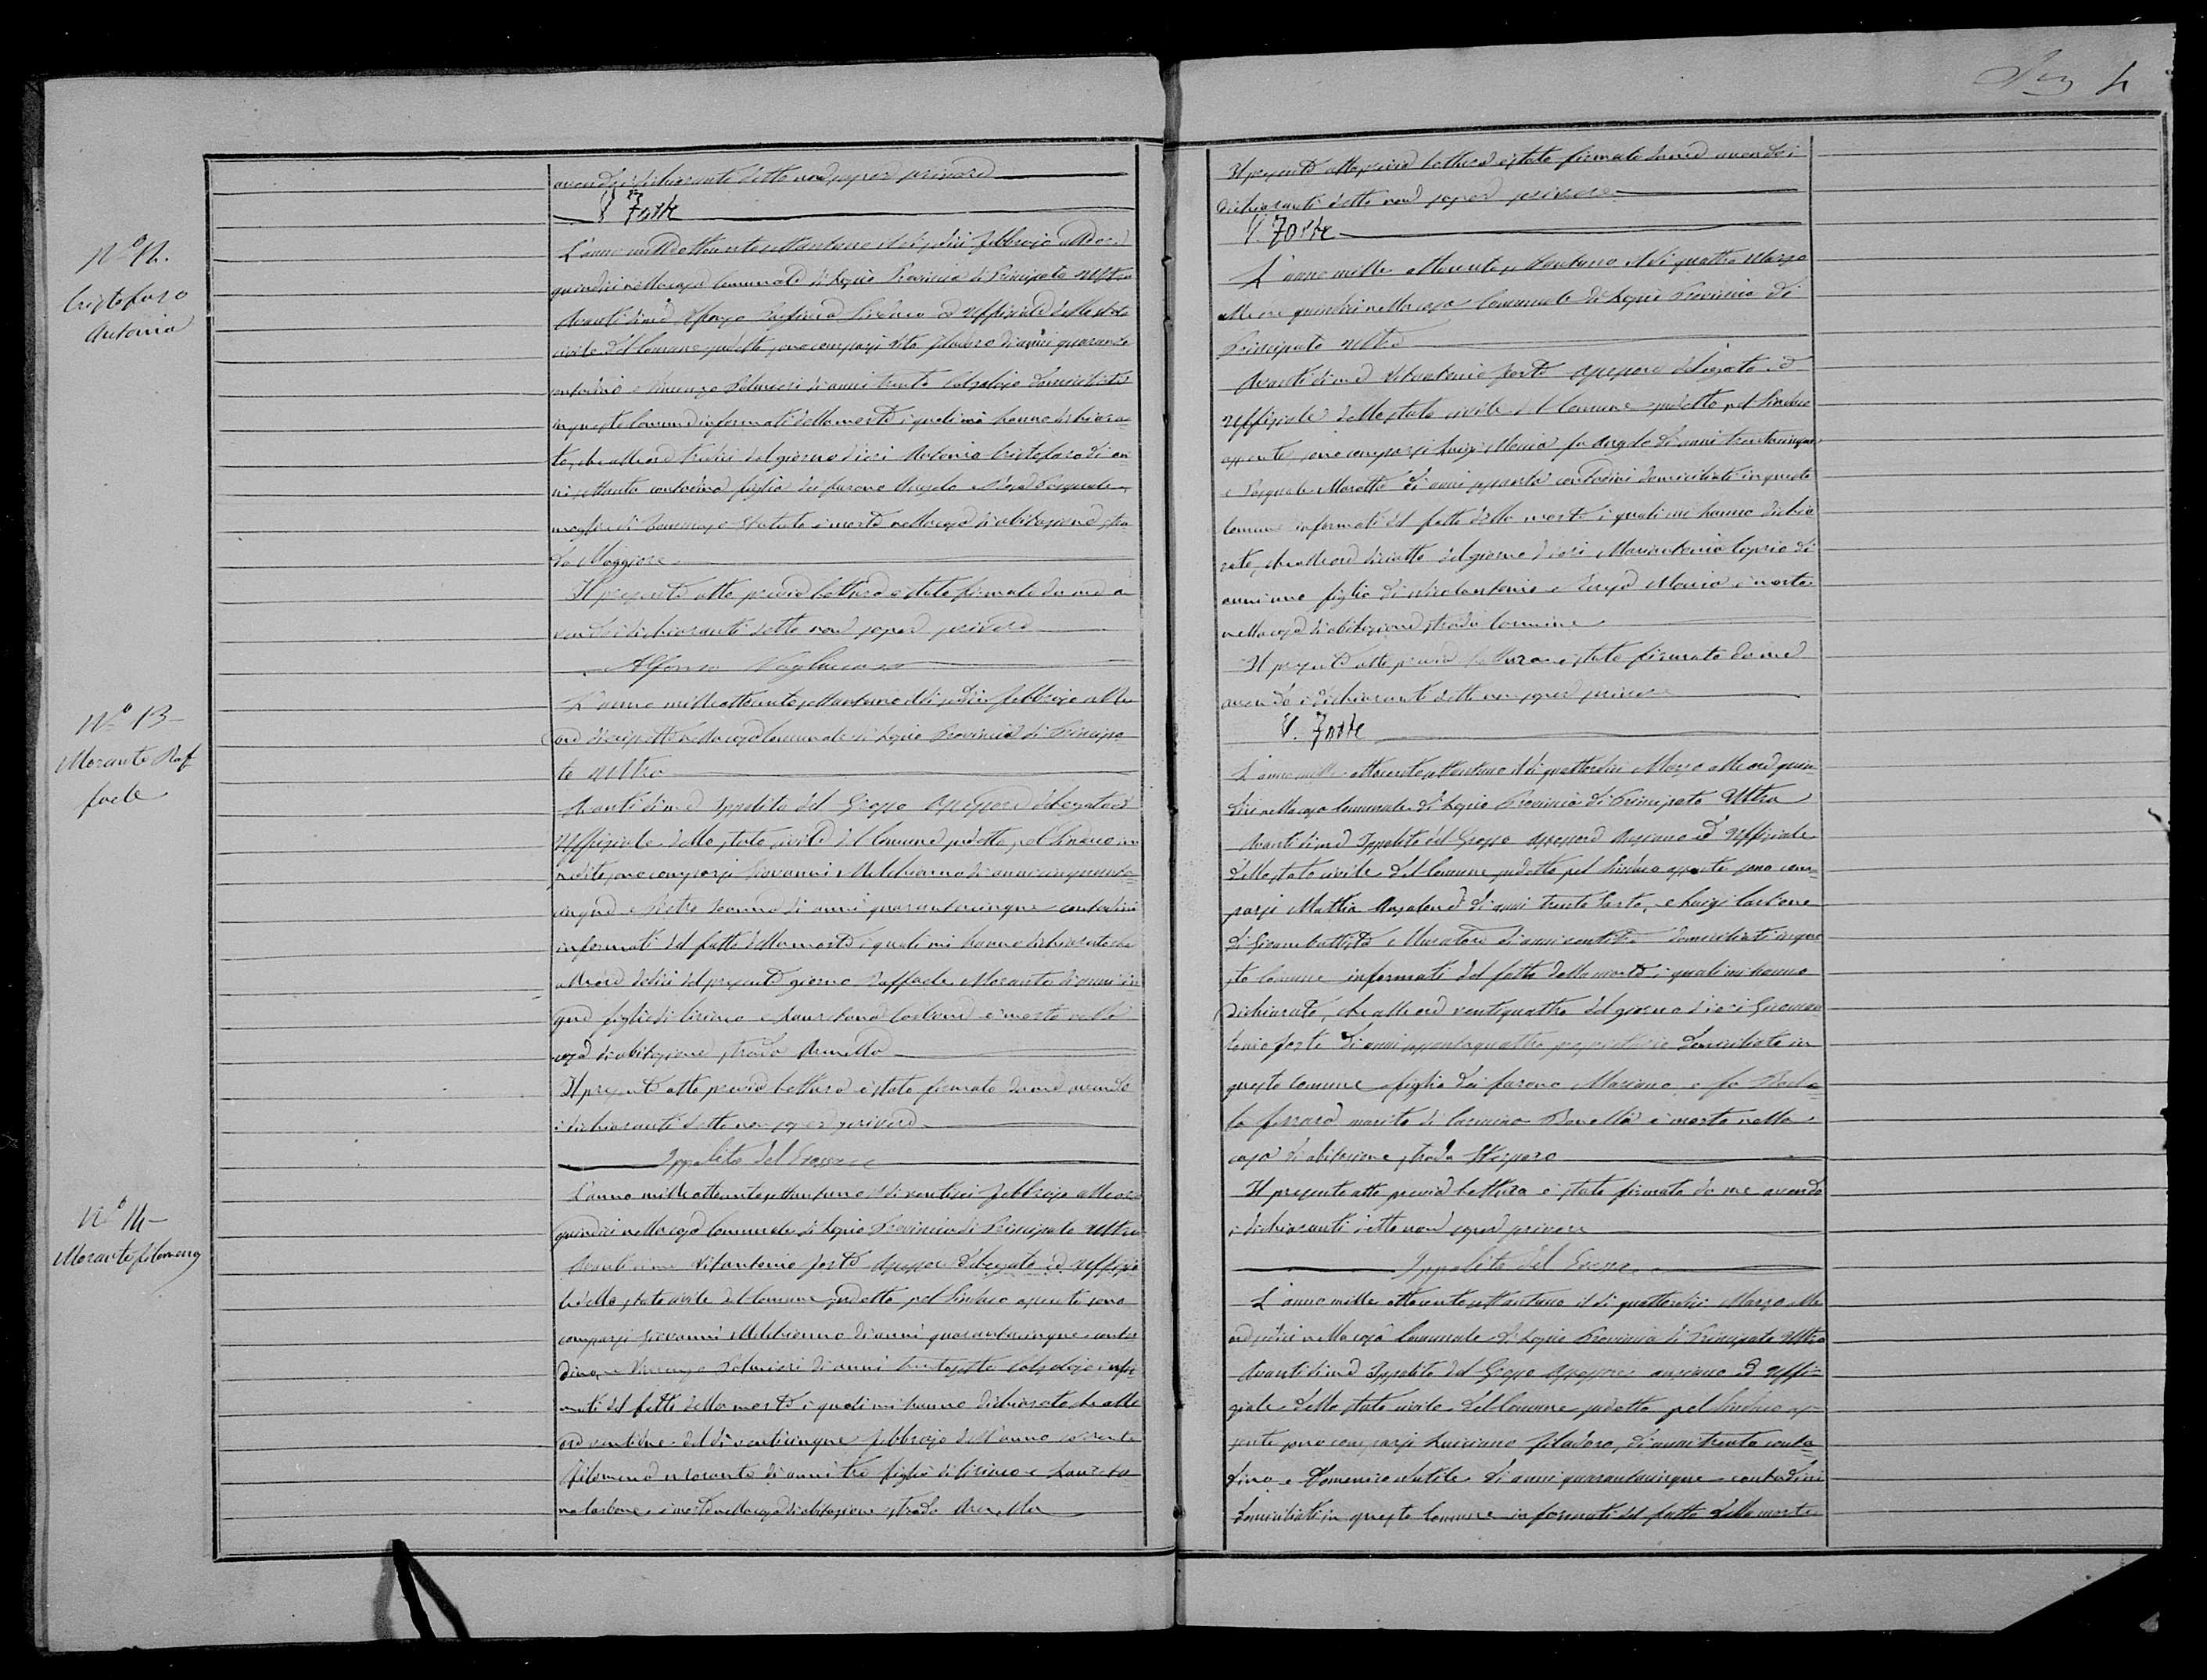 Pag 4
avendo i dichiaranti detto non saper scrivere
V. Forte
N.° 12.
Cristofaro
Antonia
L'anno mille ottocento settantuno il dì sedici febbrajo alle ore
quindici nella casa Comunale di Lapio Provincia di Principato Ultra
Avanti di me Alfonso Sindaco ed Uffiziale dello stato
civile del Comune sudetto sono comparsi Vito Filadoro di anni quaranta
contadino e Vincenzo Palmieri di anni trenta calzolajo domiciliati
in questo Comune informati della morte i quali mi hanno dichiara=
to, che alle ore tredici del giorno di ieri Antonia Cristofaro di an=
ni settanta contadina figlia dei furono Angelo e Pasquale,
moglie di Tommaso è morta nella casa di abitazione stra
da Maggiore
Il presente atto previa lettura è stato firmato da me a
vendo i dichiaranti detto non saper scrivere
Alfonso
N.° 13-
Morante Raf
faele
L'anno mille ottocento settantuno il dì sedici febbrajo alle
ore diciassette nella casa Comunale di Lapio Provincia di Principa
to Ultra
Avanti di me Ippolito del Grosso Assessore delegato ed
Uffiziale dello stato civile del Comune sudetto pel Sindaco im
pedito sono comparsi Giovanni Melchionna di anni cinquanta
cinque e Pietro di anni quarantacinque contadini
informati del fatto della morte i quali mi hanno dichiarato che
alle ore dodici del presente giorno Raffaele Morante di anni cin
que figlio di Ciriaco e Carbone è morto nella
casa di abitazione strada Arenella
Il presente atto previa lettura è stato firmato da me avendo
i dichiaranti detto non saper scrivere
Ippolito del Grosso
N.° 14-
Morante Filomena
L'anno mille ottocento settantuno il dì ventisei febbrajo alle ore
quindici nella casa Comunale di Lapio Provincia di Principato Ultra
Avanti di me Vitantonio Forte Assessore delegato ed Uffizia
le dello stato civile del Comune sudetto pel Sindaco assente sono
comparsi Giovanni Melchionna di anni quarantacinque conta
dino, e Vincenzo Palmieri di anni trentasette calzolajo infor
mati del fatto della morte i quali mi hanno dichiarato che alle
ore ventidue del dì venticinque febbrajo dell'anno corrente
Filomena Morante di anni tre figlia di Ciriaco e
Carbone è morta nella casa di abitazione strada Arenella
Il presente atto previa lettura è stato firmato da me avendo i
dichiaranti detto non saper scrivere
V. Forte
L'anno mille ottocento settantuno il dì quattro Marzo
alle ore quindici nella casa Comunale di Lapio Provincia di
Principato Ultra
Avanti di me Vitantonio Forte Assessore delegato ed
Uffiziale dello stato civile del Comune sudetto pel Sindaco
assente sono comparsi Luigi fu Angelo di anni trentacinque
e Pasquale Marotta di anni sessanta contadini domiciliati in questo
Comune informati del fatto della morte i quali mi hanno dichia
rato, che alle ore diciotto del giorno di ieri Mariantonia Caprio di
anni uno figlia di Nicolantonio e è morta
nella casa di abitazione strada Carmine
Il presente atto previa lettura è stato firmato da me
avendo i dichiaranti detto non saper scrivere
V. Forte
L'anno mille ottocento settantuno il dì quattordici Marzo alle ore quin
dici nella casa Comunale di Lapio Provincia di Principato Ultra
Avanti di me Ippolito del Grosso Assessore Anziano ed Uffiziale
dello stato civile del Comune sudetto pel Sindaco assente sono com=
parsi Mattia di anni trenta Sarto, e Luigi Carbone
di Giambattista Muratore di anni ventitre domiciliati in que
sto Comune informati del fatto della morte i quali mi hanno
dichiarato, che alle ore ventiquattro del giorno di ieri
Forte di anni sessantaquattro proprietario domiciliato in
questo Comune figlio dei furono Mariano e fu
Ferraro marito di Carmina è morto nella
casa di abitazione strada
Il presente atto previa lettura è stato firmato da me avendo
i dichiaranti detto non saper scrivere
Ippolito del Grosso
L'anno mille ottocento settantuno il dì quattordici Marzo alle
ore sedici nella casa Comunale di Lapio Provincia di Principato Ultra
Avanti di me Ippolito del Grosso Assessore anziano ed Uffi=
ziale dello stato civile del Comune sudetto pel Sindaco as
sente sono comparsi Luciano Filadoro, di anni trenta conta
dino, e Domenico di anni quarantacinque contadini
domiciliati in questo Comune informati del fatto della morte